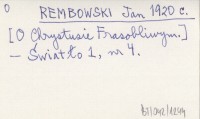 REMBOWSKI Jan 1920 c.
[O Chrystusie Frasobliwym.]
— Światło 1, nr 4.